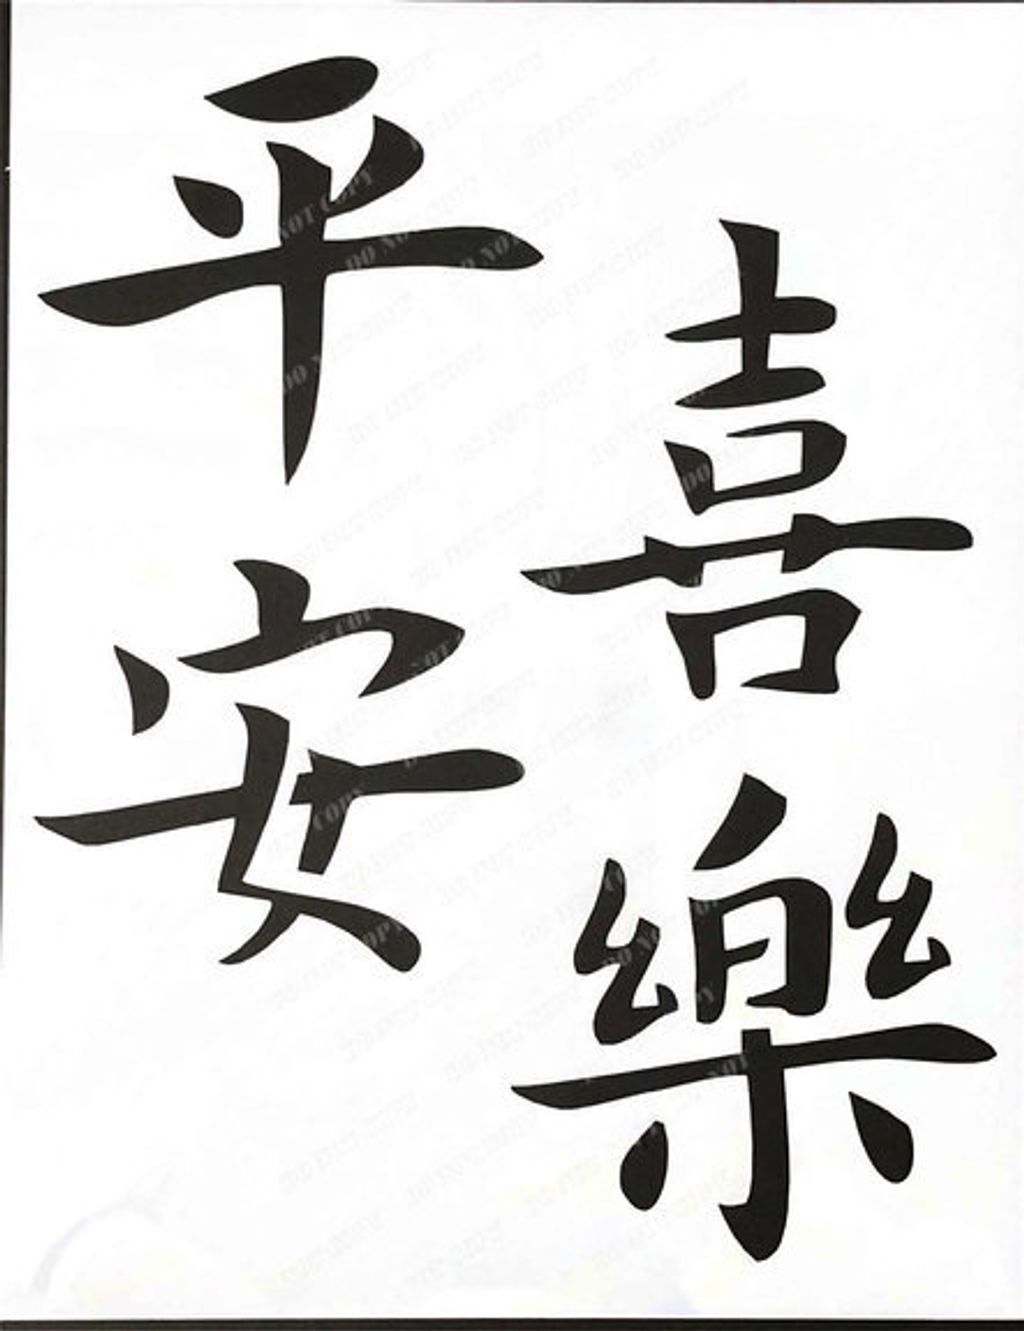 平安
喜樂
DO NOT COPY